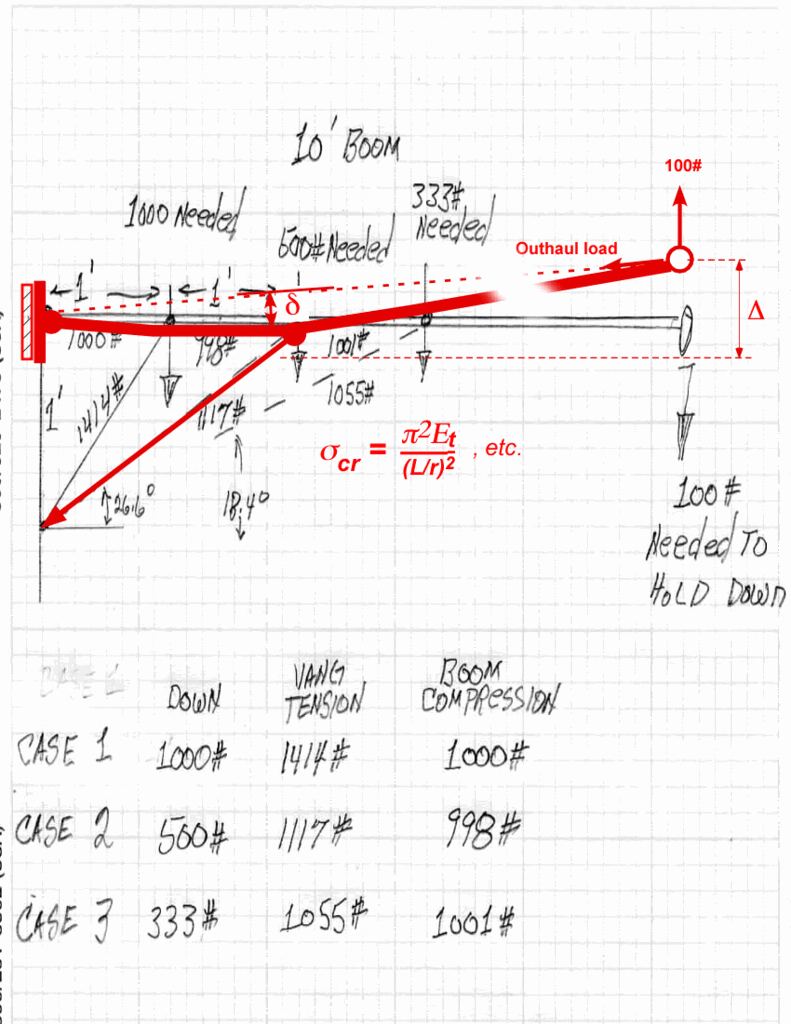 10' BOOM
100#
1000 Needed
333#
Needed
500# Needed
Outhaul load
1'
1'
δ
Δ
1000#
998#
1001#
1055#
1'
1414#
1117#
σcr = π²Et / (L/r)² , etc.
26.6°
18.4°
100#
Needed To
HOLD DOWN
DOWN
VANG
TENSION
BOOM
COMPRESSION
CASE 1 1000# 1414# 1000#
CASE 2 500# 1117# 998#
CASE 3 333# 1055# 1001#